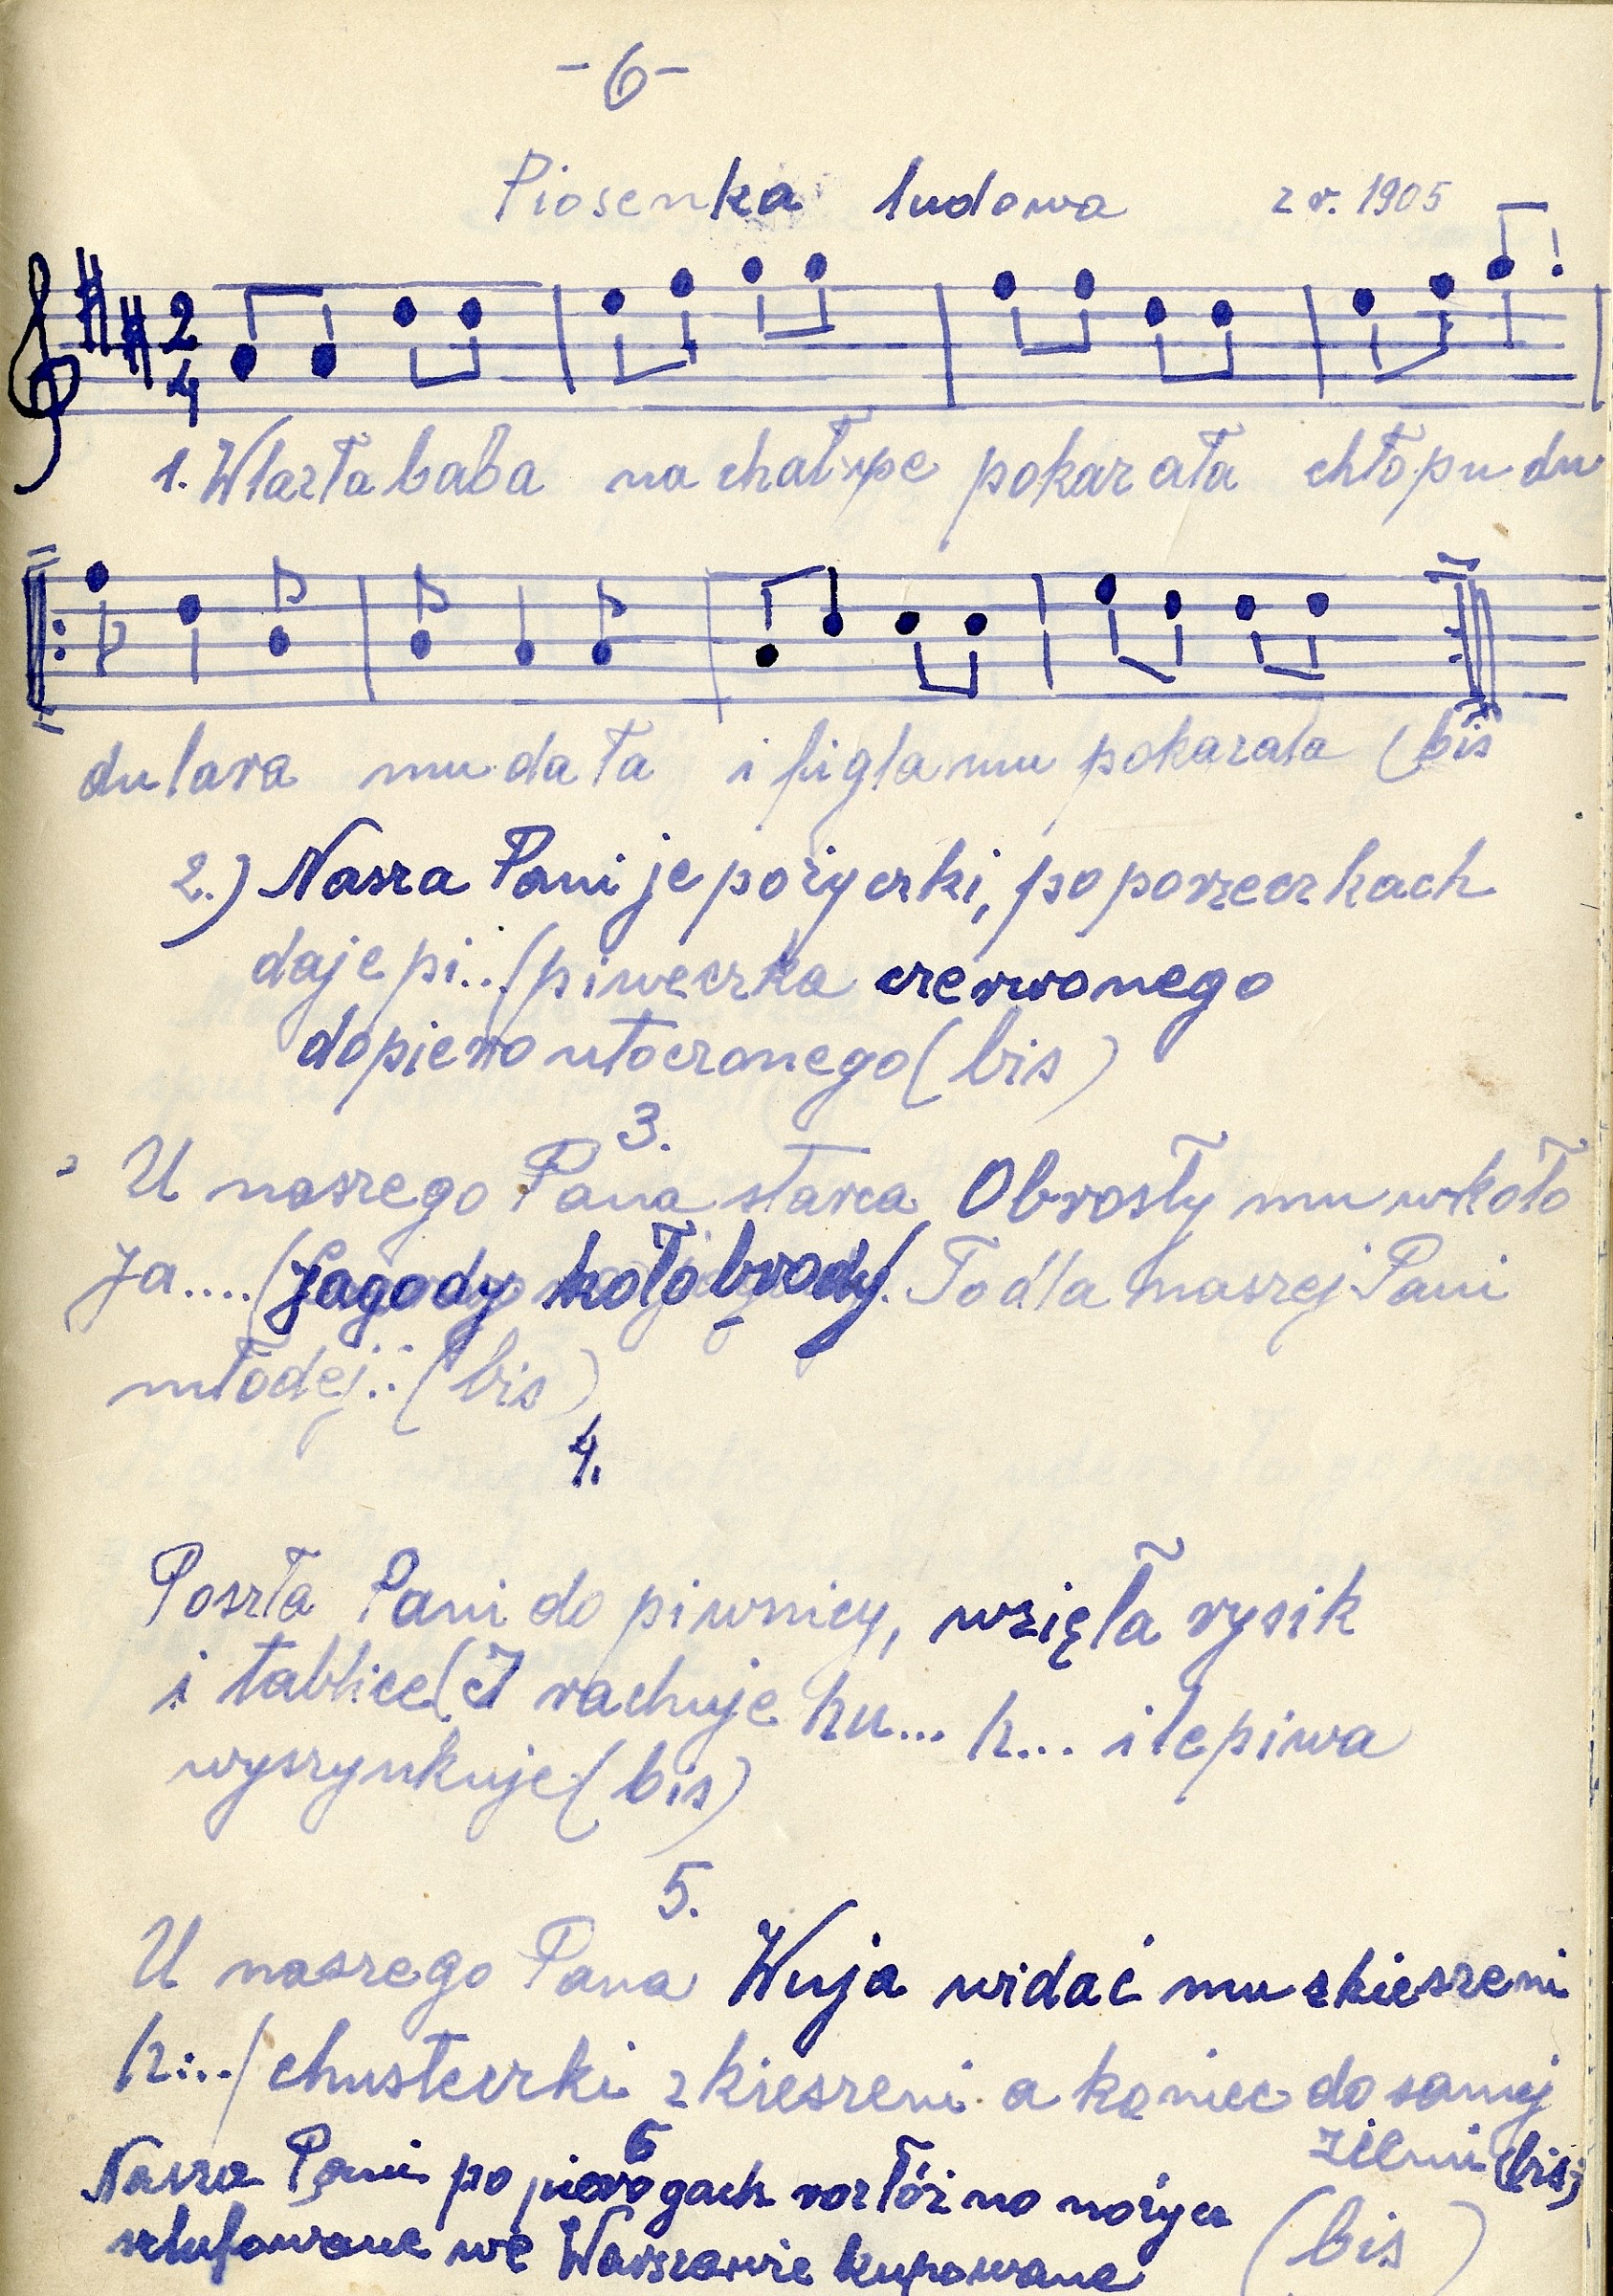 -6-
Piosenka ludowa z r. 1905
2
4
1. Wlazła baba na chałupe pokazała chłopu du
dulara mu dała i figla mu pokazała (bis
2.) Nasza Pani je pożyczki, po porzeczkach
daje pi...(piweczka czerwonego
dopiero utoczonego (bis)
3.
U naszego Pana starca Obrosły mu wkoło
Ja....(Jagody koło brody. To dla naszej Pani
młodej.: (bis)
4.
Poszła Pani do piwnicy, wzięła rysik
i tablice (I rachuje hu... h... ile piwa
wyszynkuje (bis)
5.
U naszego Pana Wuja widać mu z kieszeni
h...( chusteczki z kieszeni a koniec do samej
ziemi (bis)
6
Nasza Pani po pierogach rozłóż no nożyce
szlufowane we Warszawie kupowane (bis)